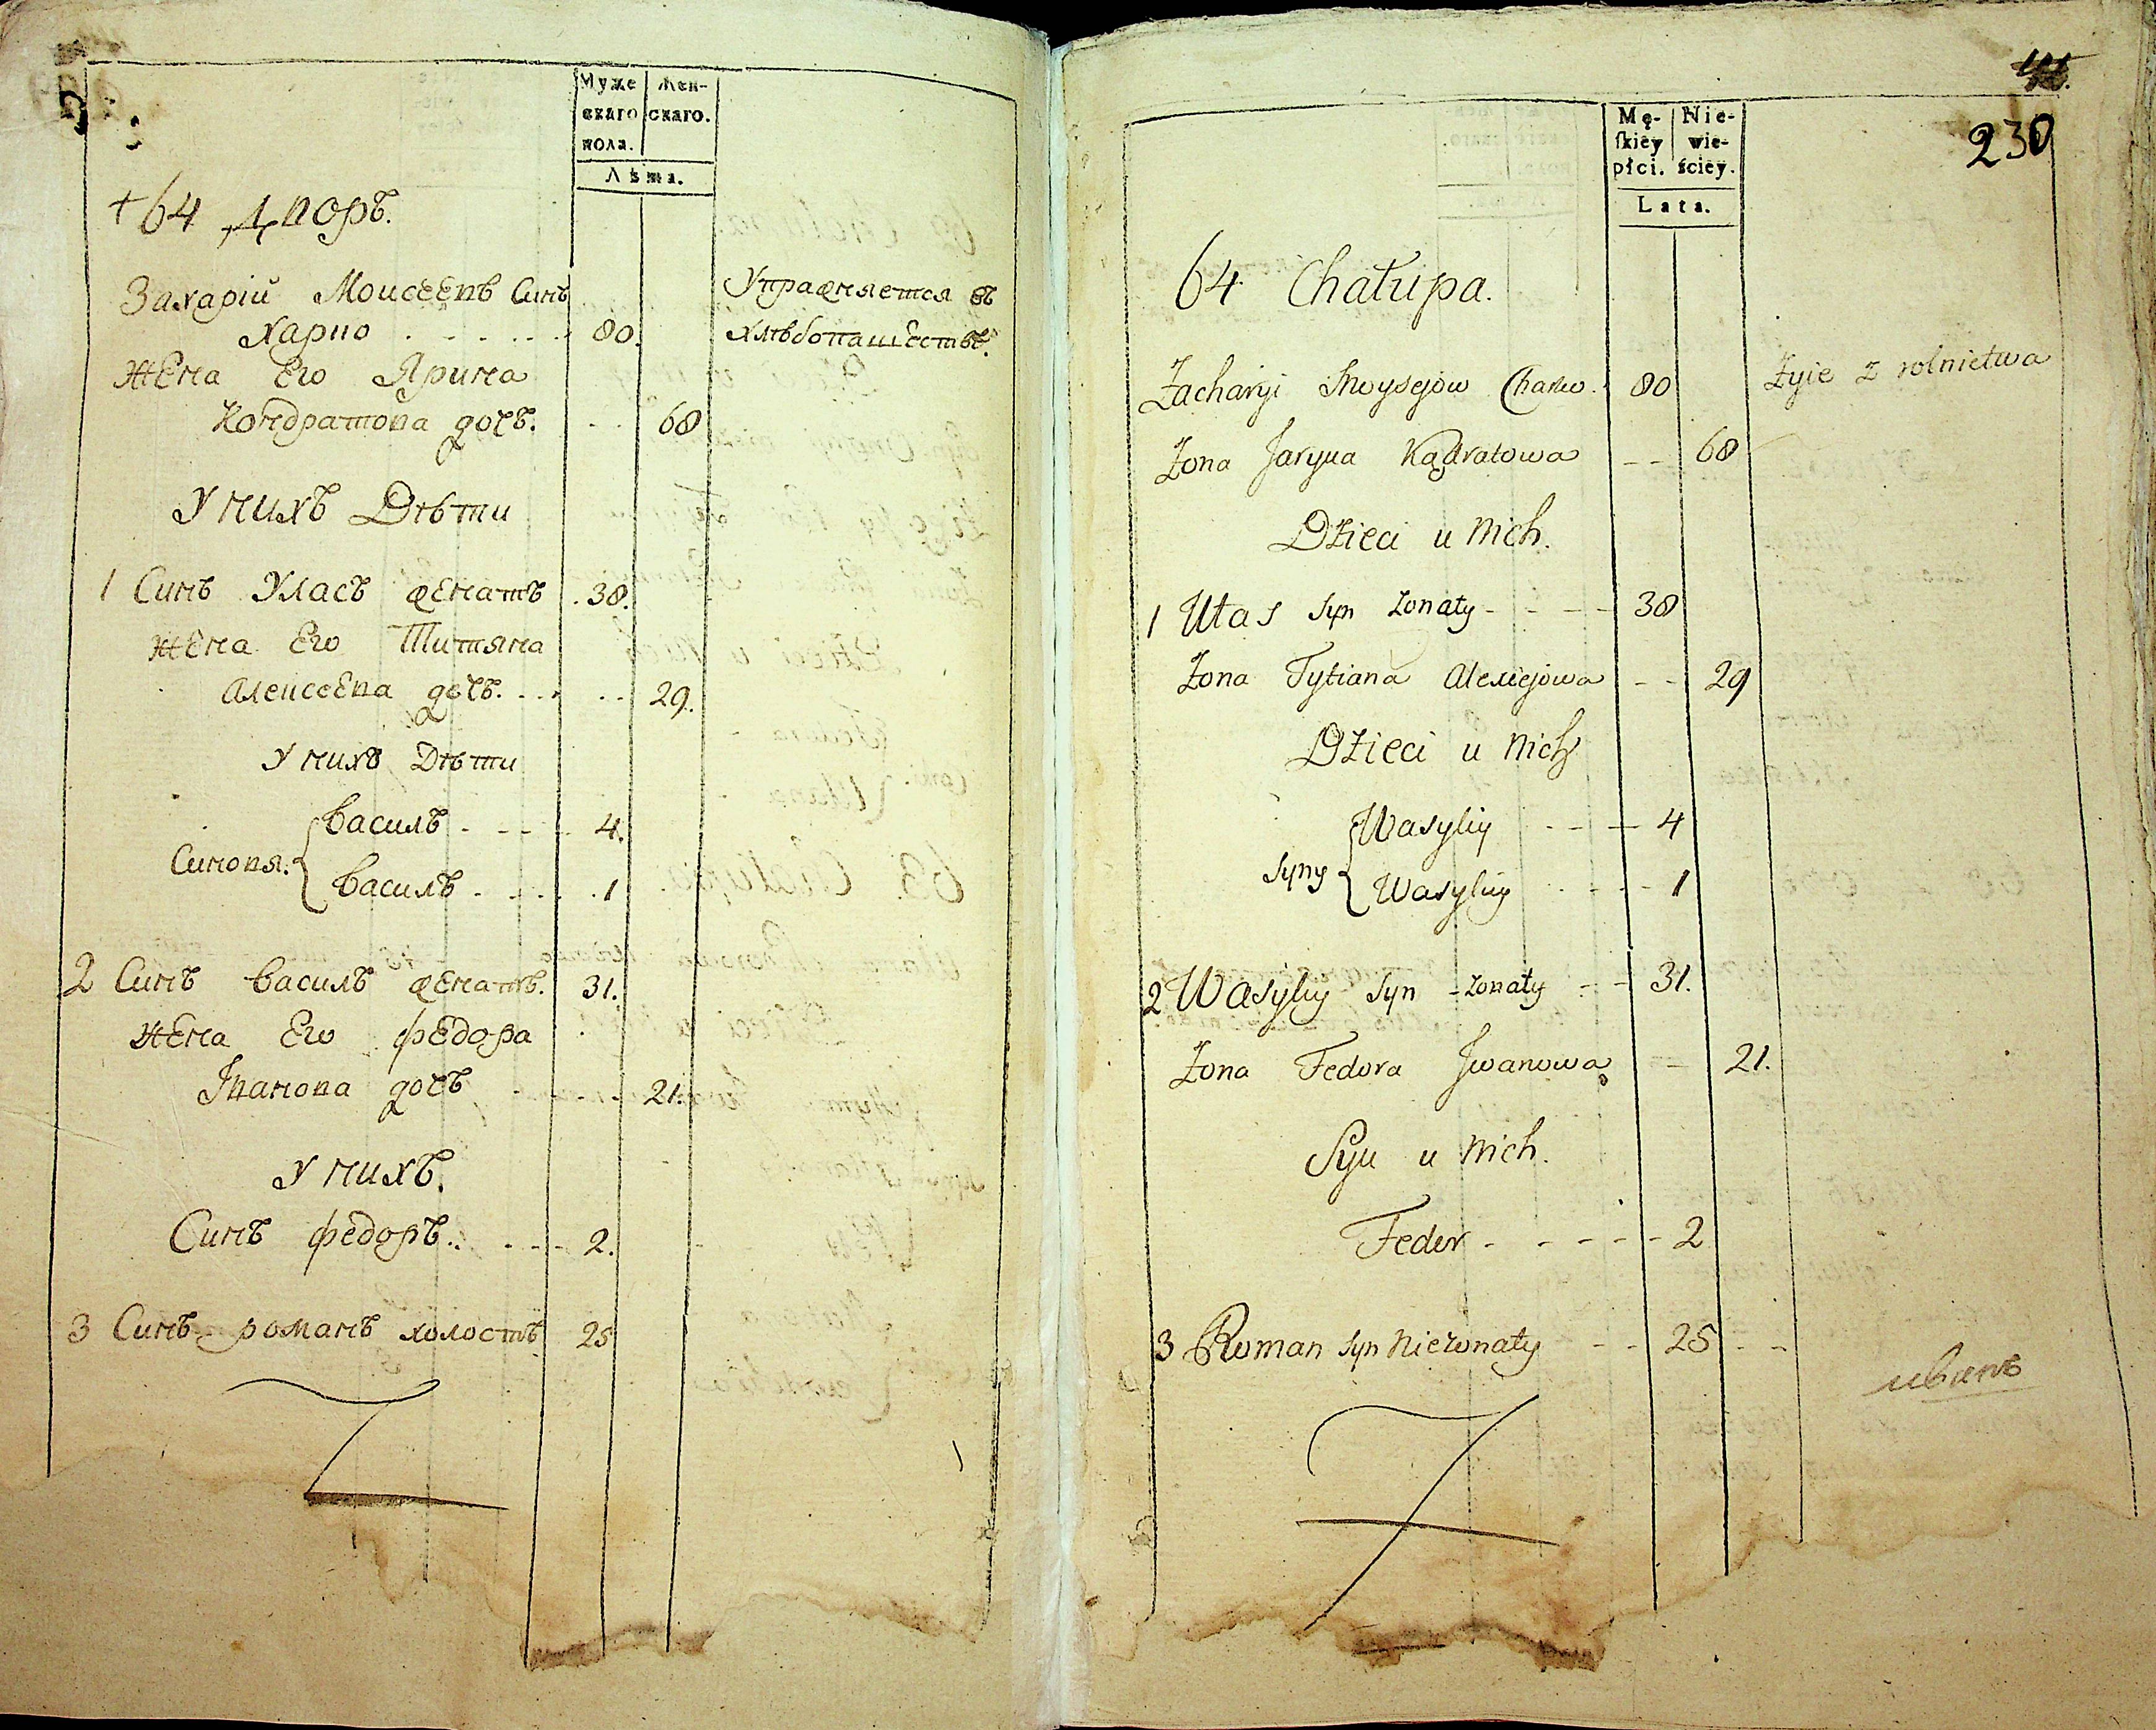 Муже
скаго
пола.
Жен-
скаго.
Лѣта.
+ 64 Дворъ.
Захарій Моисеевъ Синъ
Харко 80.
Упражняется въ
хлѣбопашествѣ.
Жена Его Ярина
Кондратова дочь. 68
У нихъ Дѣти
1 Синъ Уласъ женатъ 38.
Жена Его Титяна
Алексеева дочь. 29.
У нихъ Дѣти
Синовя.
Василь 4.
Василь 1
2 Синъ Василь женатъ. 31.
Жена Его Федора
Іванова дочь 21.
У нихъ.
Синъ Федоръ. 2.
3 Синъ романъ холостъ 25
230
Mę-
skiey
płci.
Nie-
wie-
ściey.
Lata.
64. Chałupa.
Zacharyi Moysejow Charko. 80
Żyie z rolnictwa
Żona Jaryna Kądratowa 68
Dzieci u Nich.
1 Ułas Syn żonaty 38
Żona Tytiana Alexiejowa 29
Dzieci u Nich
Syny
Wasyliy 4
Wasyliy 1
2 Wasyliy Syn żonaty 31.
Żona Fedora Jwanowa 21.
Syn u Nich.
Fedor 2
3 Roman Syn Nieżonaty 25